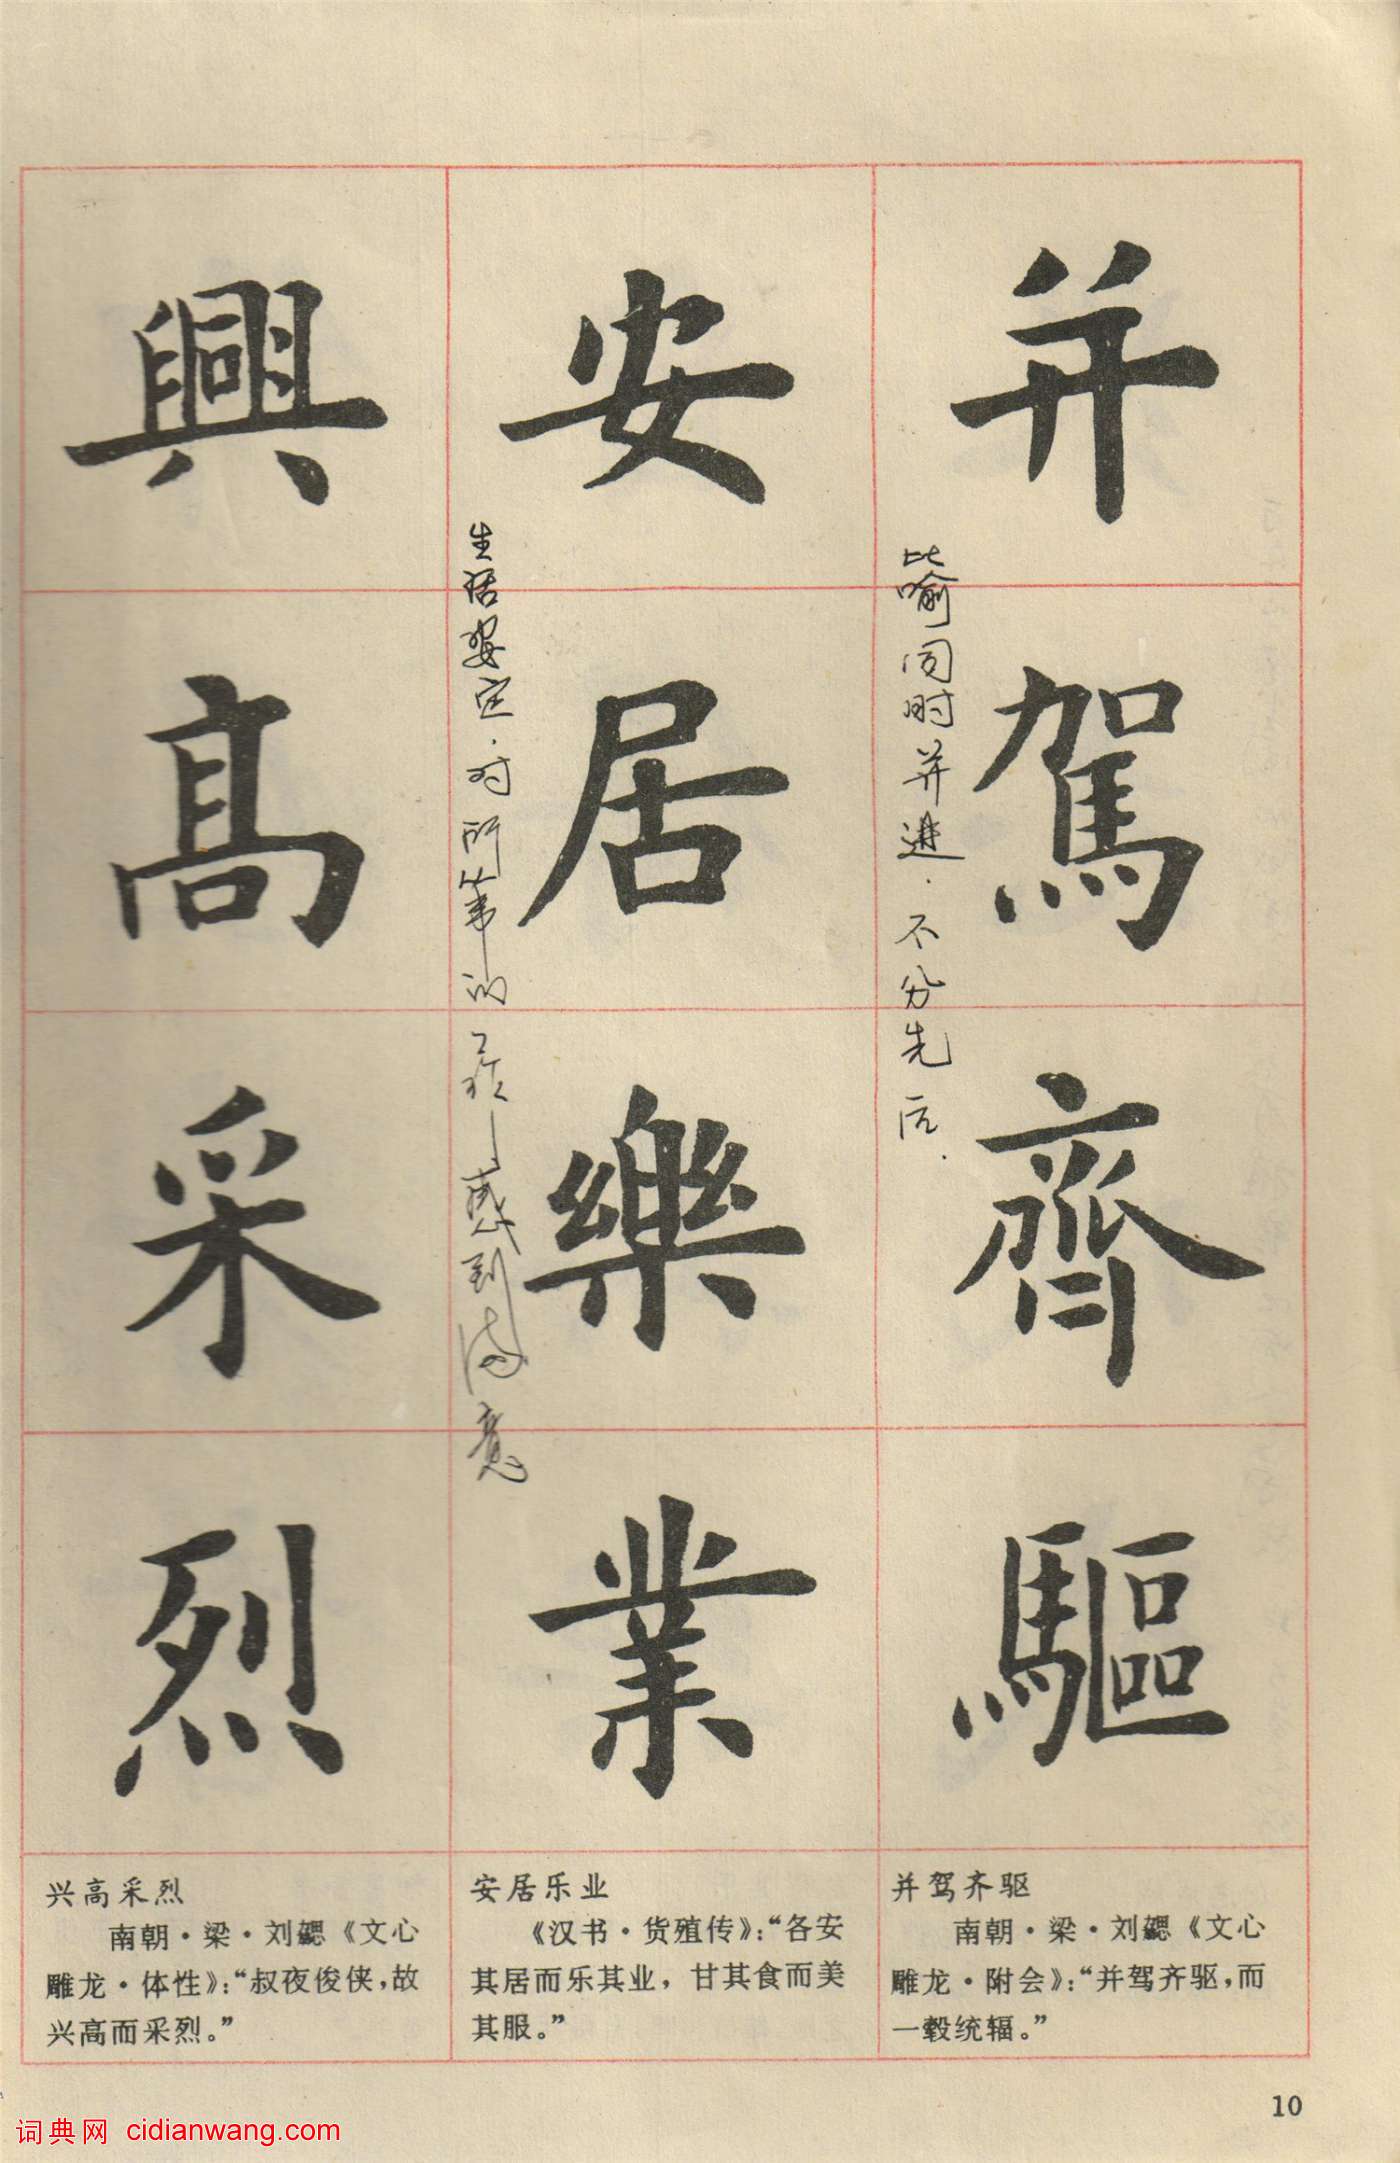 并駕齊驅
比喻同时并进.不分先后.
安居樂業
生活安定.对所事的工作感到满意
興高采烈
并驾齐驱
南朝·梁·刘勰《文心
雕龙·附会》:“并驾齐驱,而
一毂统辐。”
安居乐业
《汉书·货殖传》:“各安
其居而乐其业,甘其食而美
其服。”
兴高采烈
南朝·梁·刘勰《文心
雕龙·体性》:“叔夜俊侠,故
兴高而采烈。”
10
词典网 cidianwang.com